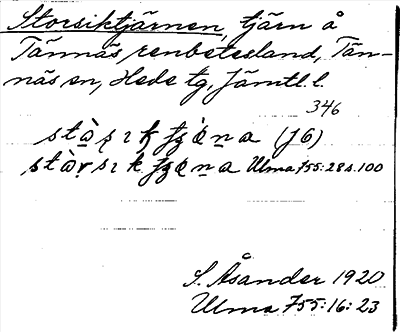 Storsiktjärnen, tjärn å
Tännäs renbetesland, Tän-
näs sn, Hede tg, Jämtl. l.
346
(J6)
Ulma 755:28 s.100
S. Åsander 1920
Ulma 755:16:23